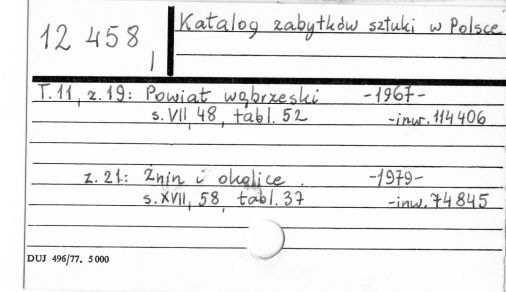 12 458,
Katalog zabytków sztuki w Polsce
T.11, z.19: Powiat wąbrzeski -1967-
s. VII, 48, tabl. 52 -inw. 114406
z. 21: Żnin i okolice -1979-
s. XVII, 58, tabl. 37 -inw. 74845
DUJ 496/77. 5000